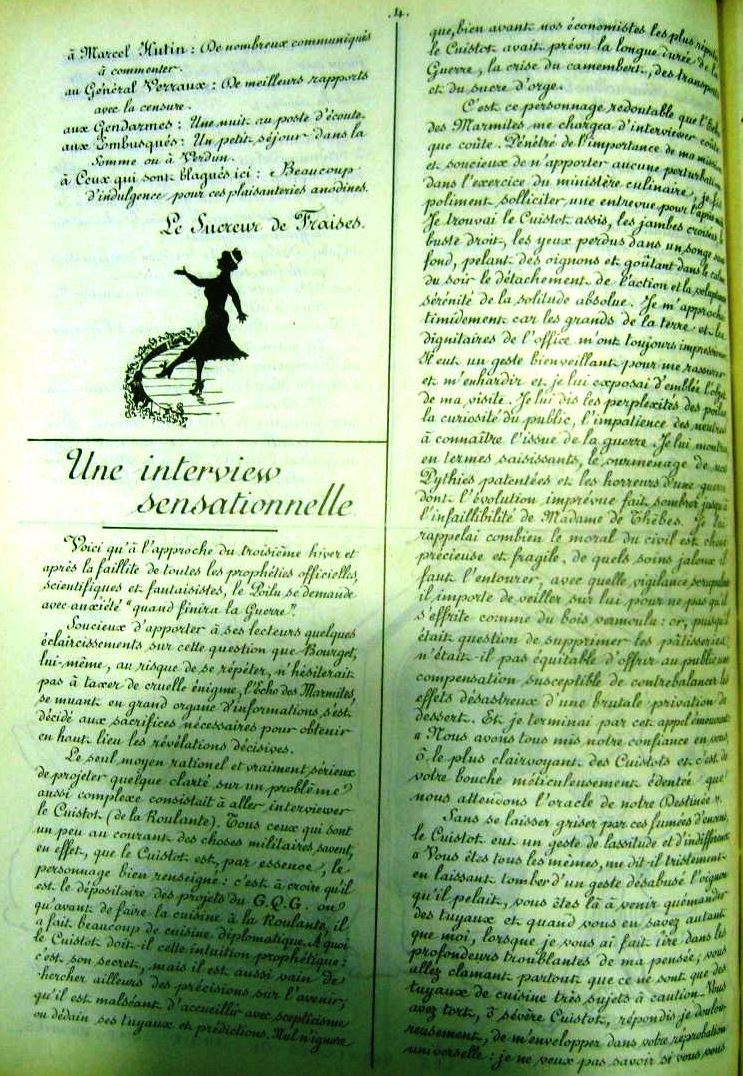 .4.
à Marcel Hutin : De nombreux communiqués
à commenter.
au Général Verraux : De meilleurs rapports
avec la censure.
aux Gendarmes : Une nuit au poste d'écoute.
aux Embusqués : Un petit séjour dans la
Somme ou à Verdun.
à Ceux qui sont blagués ici : Beaucoup
d'indulgence pour ces plaisanteries anodines.
Le Sucreur de Fraises.
Une interview
sensationnelle
Voici qu'à l'approche du troisième hiver et
après la faillite de toutes les prophéties officielles,
scientifiques et fantaisistes, le Poilu se demande
avec anxiété "quand finira la Guerre".
Soucieux d'apporter à ses lecteurs quelques
éclaircissements sur cette question que Bourget,
lui-même, au risque de se répéter, n'hésiterait
pas à taxer de cruelle énigme, l'écho des Marmites,
se muant en grand organe d'informations, s'est
décidé aux sacrifices nécessaires pour obtenir
en haut lieu les révélations décisives.
Le seul moyen rationnel et vraiment sérieux
de projeter quelque clarté sur un problème
aussi complexe consistait à aller interviewer
le Cuistot (de la Roulante). Tous ceux qui sont
un peu au courant des choses militaires savent,
en effet, que le Cuistot est, par essence, le
personnage bien renseigné : c'est à croire qu'il
est le dépositaire des projets du G.Q.G. ou
qu'avant de faire la cuisine à la Roulante, il
a fait beaucoup de cuisine diplomatique. A quoi
le Cuistot doit-il cette intuition prophétique :
c'est son secret, mais il est aussi vain de
chercher ailleurs des précisions sur l'avenir,
qu'il est malséant d'accueillir avec scepticisme
ou dédain ses tuyaux et prédictions. Nul n'ignore
que, bien avant nos économistes les plus
le Cuistot avait prévu la longue durée de la
Guerre, la crise du camembert, des transports
et du sucre d'orge.
C'est ce personnage redoutable que l'Echo
des Marmites me chargea d'interviewer coûte
que coûte. Pénétré de l'importance de ma mission
et soucieux de n'apporter aucune perturbation
dans l'exercice du ministère culinaire, je fis
poliment solliciter une entrevue pour l'après-midi
Je trouvai le Cuistot assis, les jambes croisées, le
buste droit, les yeux perdus dans un songe
fond, pelant des oignons et goûtant dans le calme
du soir le détachement de l'action et la voluptueuse
sérénité de la solitude absolue. Je m'approchai
timidement car les grands de la terre et les
dignitaires de l'office m'ont toujours impressionné
Il eut un geste bienveillant pour me rassurer
et m'enhardir et je lui exposai d'emblée l'objet
de ma visite. Je lui dis les perplexités des poilus
la curiosité du public, l'impatience des neutres
à connaître l'issue de la guerre. Je lui montrai
en termes saisissants, le surmenage de nos
Pythies patentées et les horreurs d'une guerre
dont l'évolution imprévue fait sombrer jusqu'à
l'infaillibilité de Madame de Thèbes. Je lui
rappelai combien le moral du civil est chose
précieuse et fragile, de quels soins jaloux il
faut l'entourer, avec quelle vigilance scrupuleuse
il importe de veiller sur lui pour ne pas qu'il
s'effrite comme du bois vermoulu : or, puisqu'il
était question de supprimer les pâtisseries,
n'était-il pas équitable d'offrir au public une
compensation susceptible de contrebalancer les
effets désastreux d'une brutale privation de
dessert. Et je terminai par cet appel émouvant
« Nous avons tous mis notre confiance en vous
ô le plus clairvoyant des Cuistots et c'est de
votre bouche méticuleusement édentée que
nous attendons l'oracle de notre Destinée ».
Sans se laisser griser par ces fumées d'encens,
le Cuistot eut un geste de lassitude et d'indifférence
« Vous êtes tous les mêmes, me dit-il tristement
en laissant tomber d'un geste désabusé l'oignon
qu'il pelait, vous êtes là à venir quémander
des tuyaux et quand vous en savez autant
que moi, lorsque je vous ai fait lire dans les
profondeurs troublantes de ma pensée, vous
allez clamant partout que ce ne sont que des
tuyaux de cuisine très sujets à caution. – Vous
avez tort, ô sévère Cuistot, répondis je doulou-
reusement, de m'envelopper dans votre réprobation
universelle : je ne veux pas savoir si vous vous